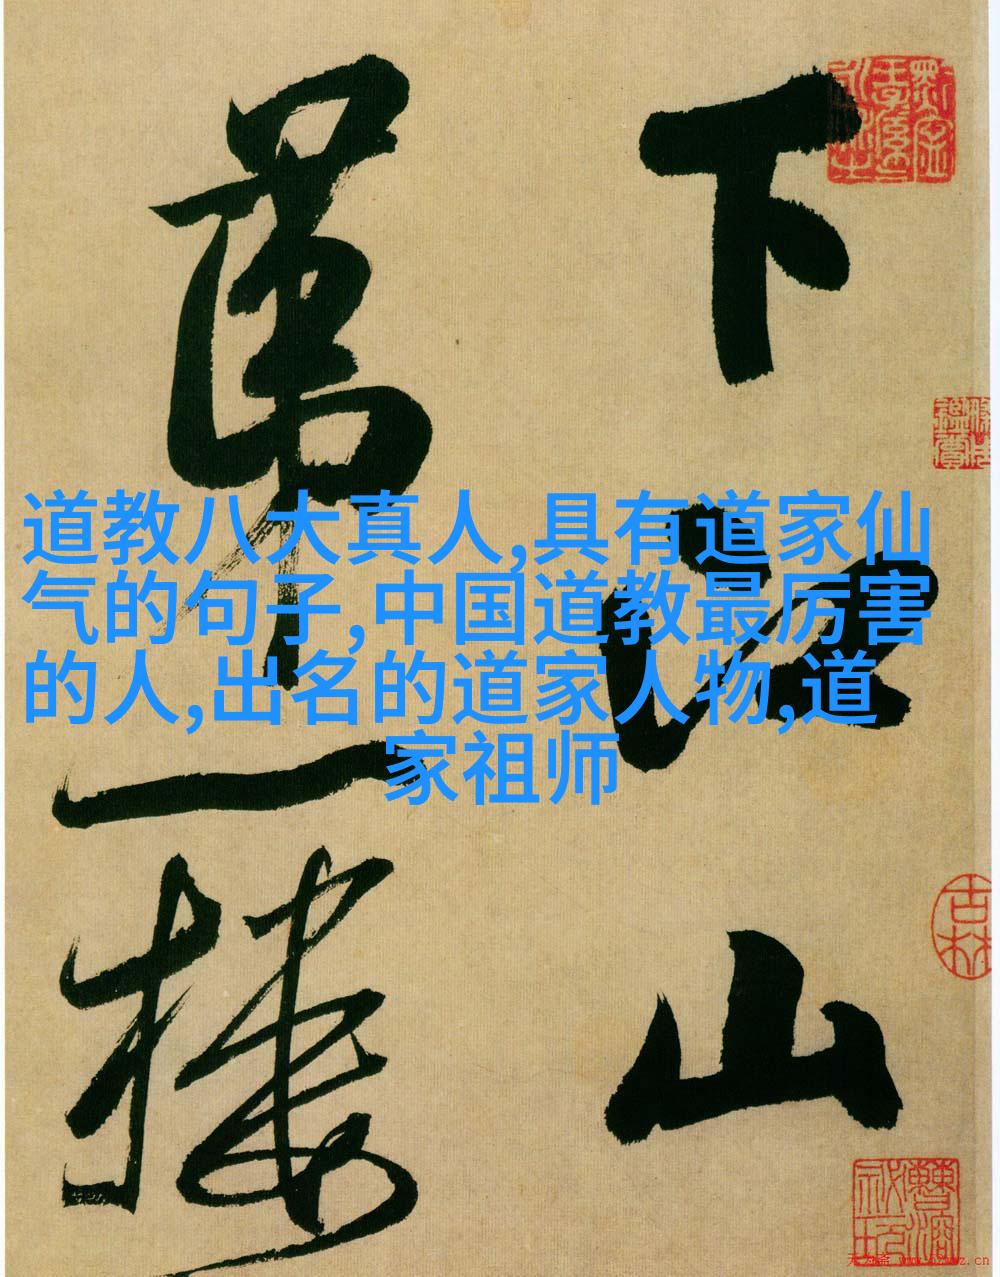 下江山
第一樓
道教八大真人,具有道家仙
气的句子,中国道教最厉害
的人,出名的道家人物,道
家祖师